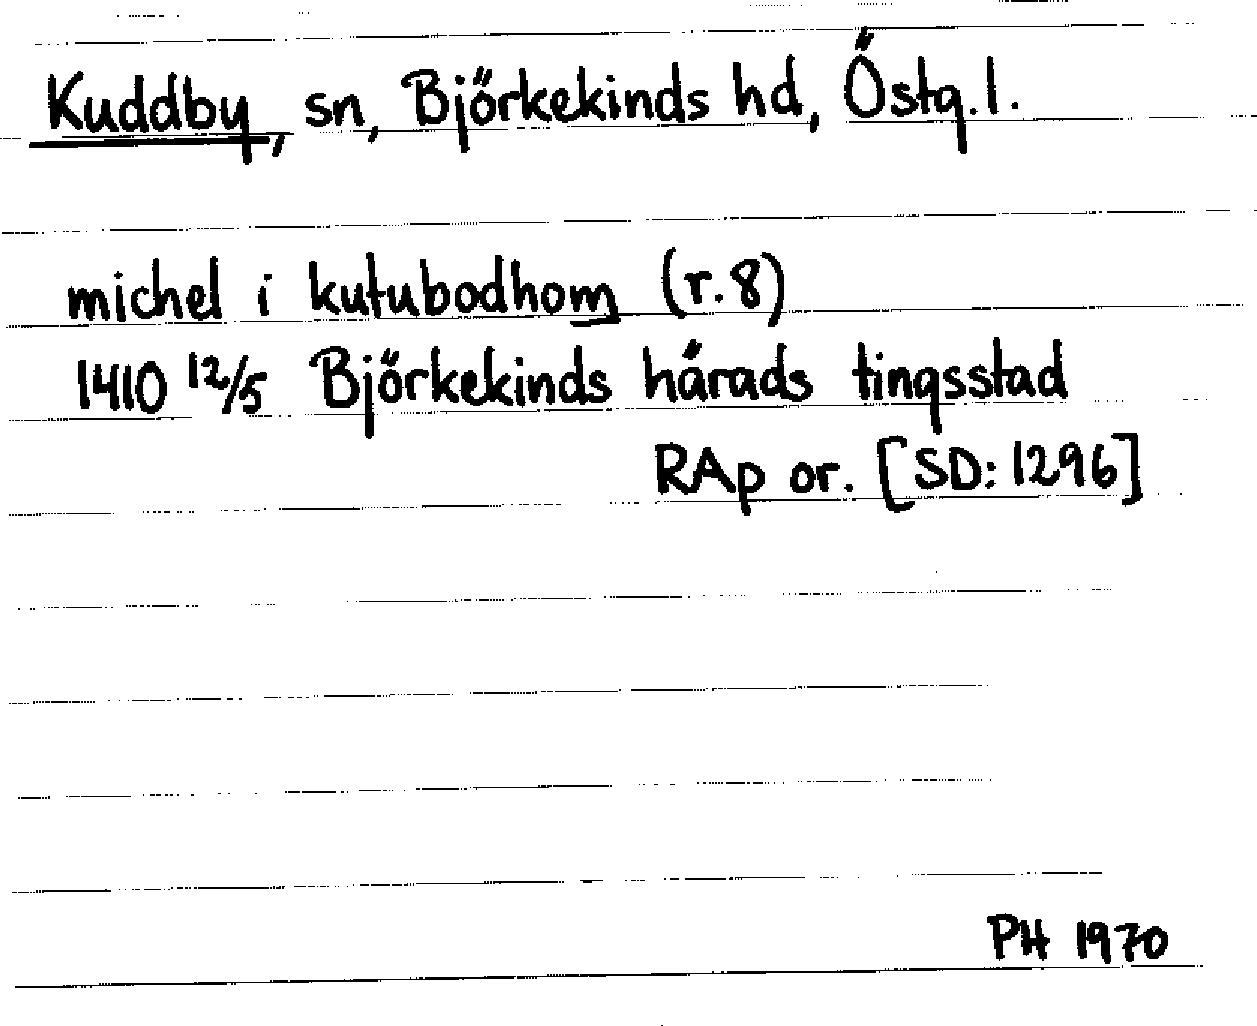 Kuddby, sn, Björkekinds hd, Östg.l.
michel i kutubodhom (r.8)
1410 12/5 Björkekinds härads tingsstad
RAp or. [SD: 1296]
PH 1970